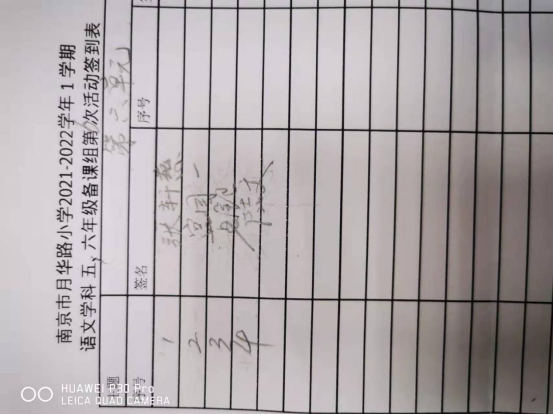 南京市月华路小学2021-2022学年1学期
语文学科 五，六年级备课组第 次活动签到表
题 第六单元
号 签名 序号
1 张
2
3
4
HUAWEI P30 Pro
LEICA QUAD CAMERA